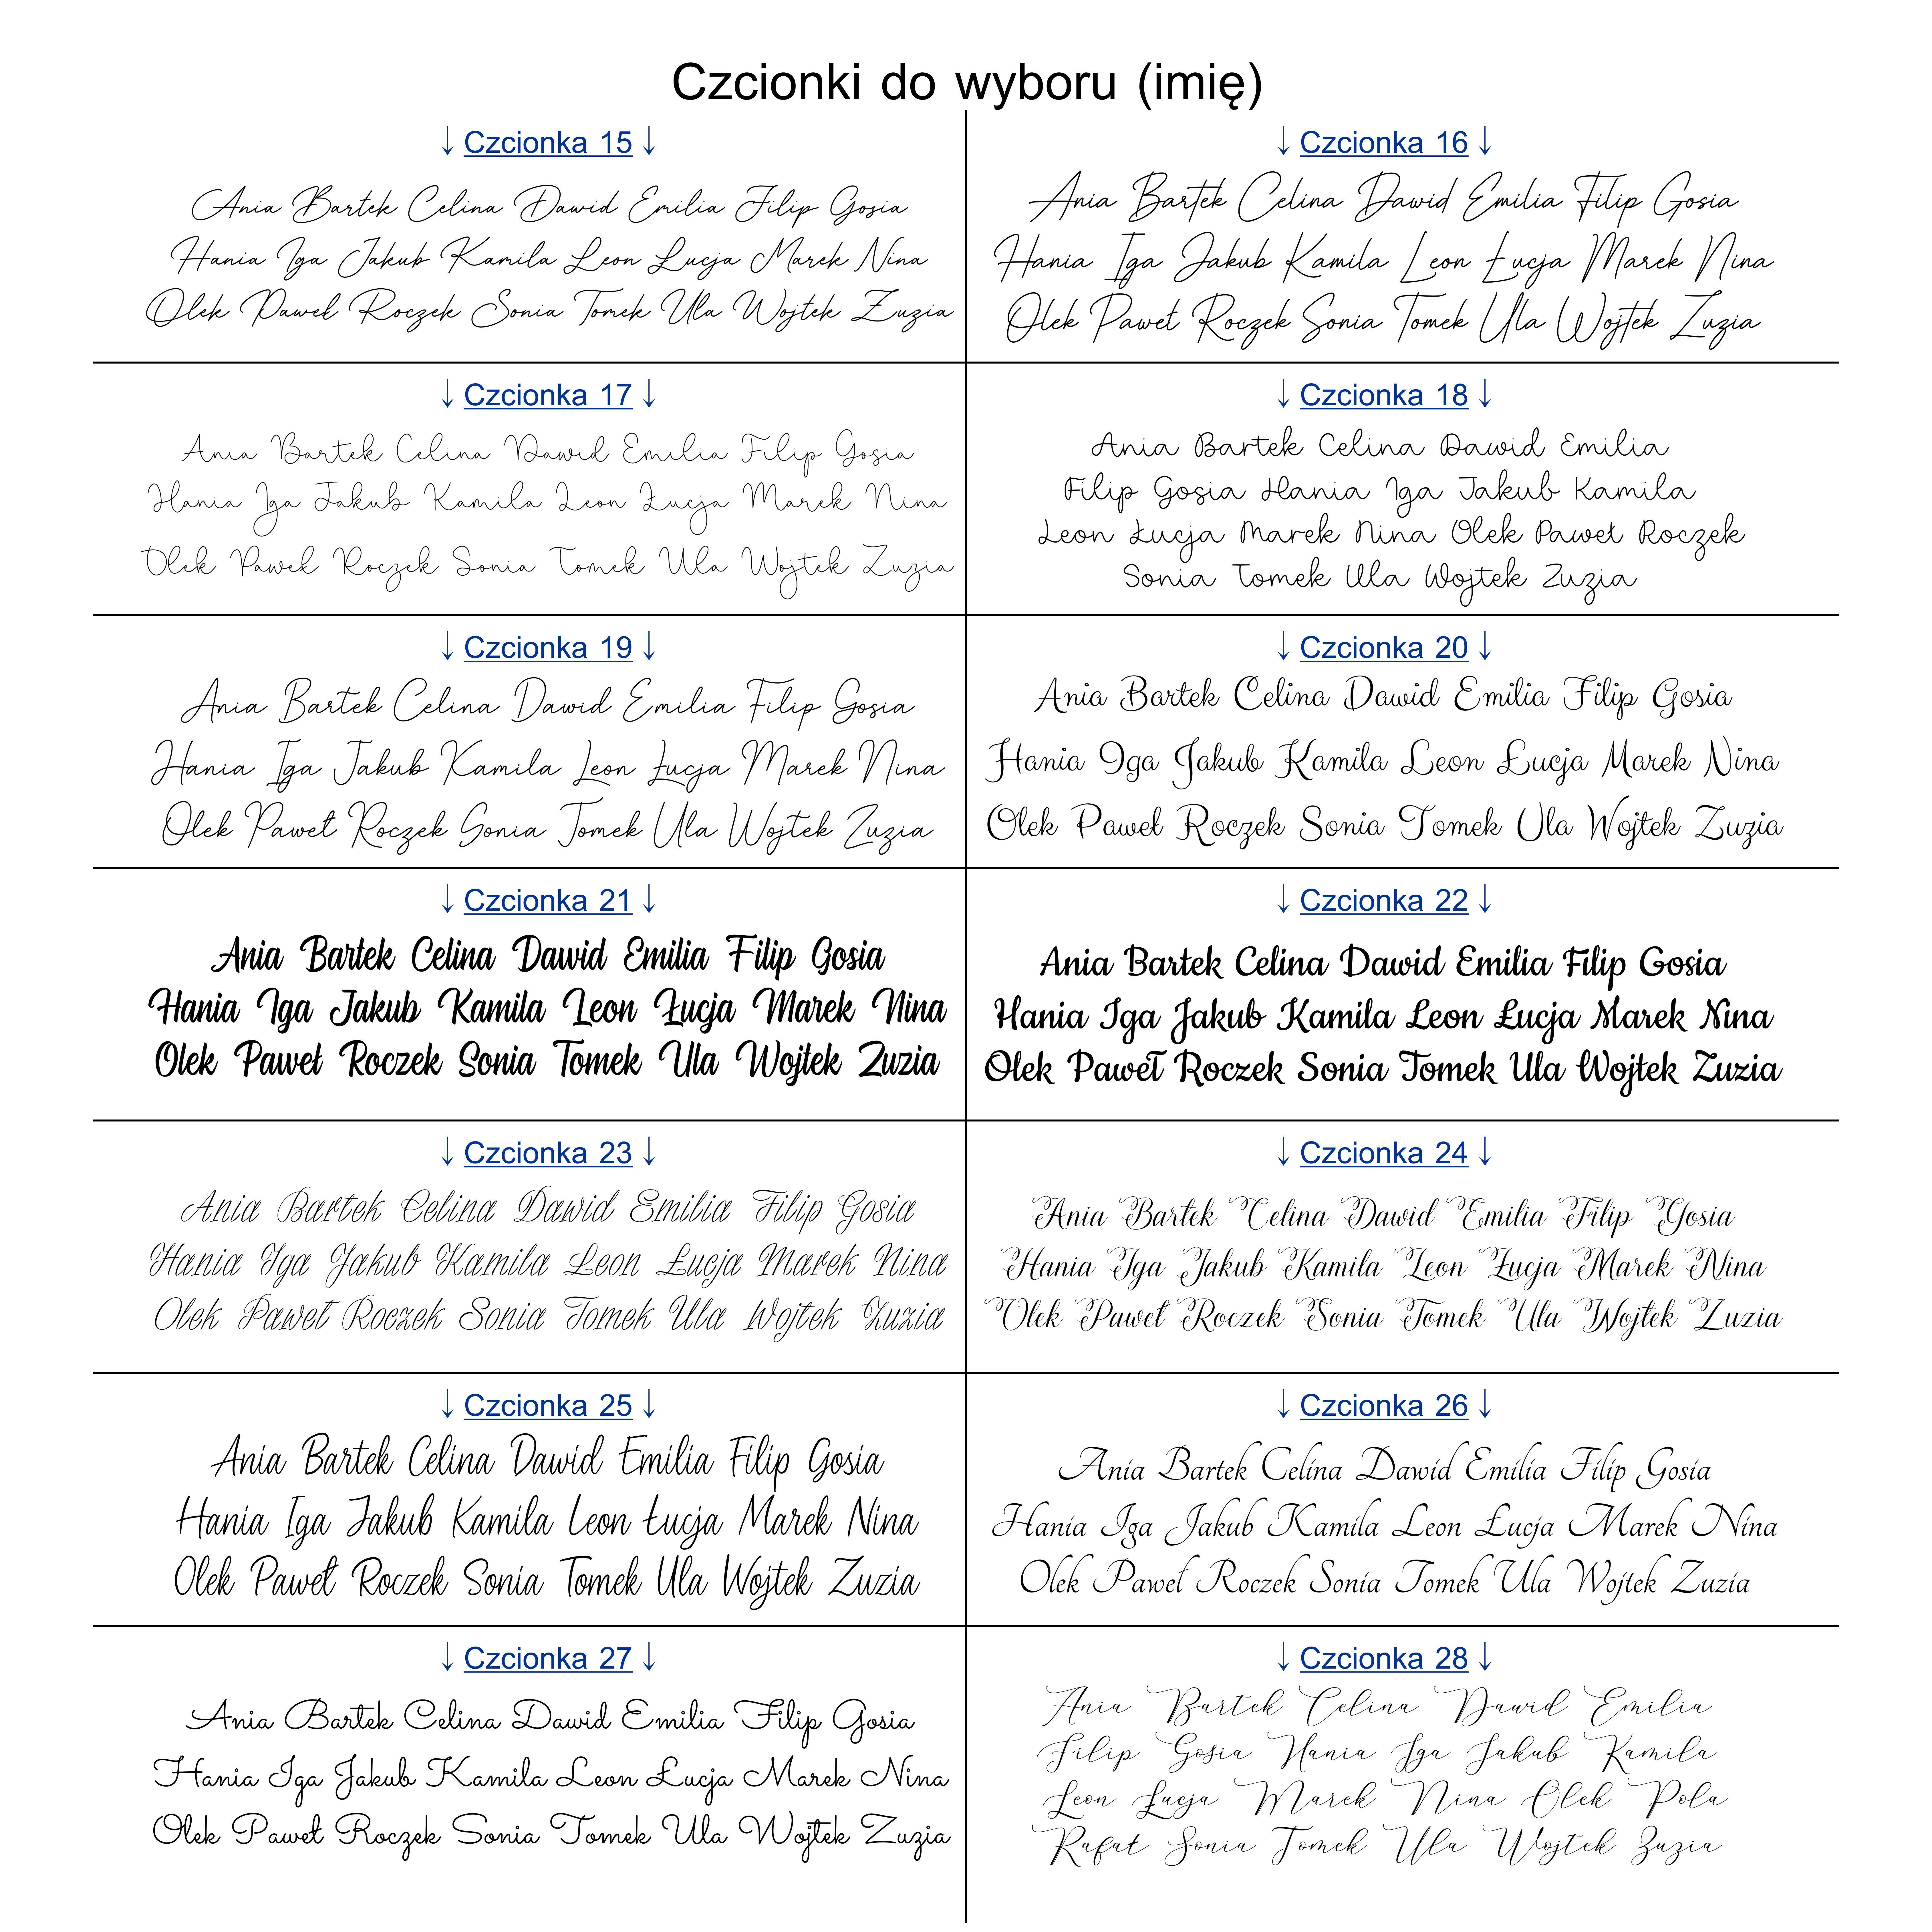 Czcionki do wyboru (imię)
↓ Czcionka 15 ↓
Ania Bartek Celina Dawid Emilia Filip Gosia
Hania Iga Jakub Kamila Leon Łucja Marek Nina
Olek Paweł Roczek Sonia Tomek Ula Wojtek Zuzia
↓ Czcionka 16 ↓
Ania Bartek Celina Dawid Emilia Filip Gosia
Hania Iga Jakub Kamila Leon Łucja Marek Nina
Olek Paweł Roczek Sonia Tomek Ula Wojtek Zuzia
↓ Czcionka 17 ↓
Ania Bartek Celina Dawid Emilia Filip Gosia
Hania Iga Jakub Kamila Leon Łucja Marek Nina
Olek Paweł Roczek Sonia Tomek Ula Wojtek Zuzia
↓ Czcionka 18 ↓
Ania Bartek Celina Dawid Emilia
Filip Gosia Hania Iga Jakub Kamila
Leon Łucja Marek Nina Olek Paweł Roczek
Sonia Tomek Ula Wojtek Zuzia
↓ Czcionka 19 ↓
Ania Bartek Celina Dawid Emilia Filip Gosia
Hania Iga Jakub Kamila Leon Łucja Marek Nina
Olek Paweł Roczek Sonia Tomek Ula Wojtek Zuzia
↓ Czcionka 20 ↓
Ania Bartek Celina Dawid Emilia Filip Gosia
Hania Iga Jakub Kamila Leon Łucja Marek Nina
Olek Paweł Roczek Sonia Tomek Ula Wojtek Zuzia
↓ Czcionka 21 ↓
Ania Bartek Celina Dawid Emilia Filip Gosia
Hania Iga Jakub Kamila Leon Łucja Marek Nina
Olek Paweł Roczek Sonia Tomek Ula Wojtek Zuzia
↓ Czcionka 22 ↓
Ania Bartek Celina Dawid Emilia Filip Gosia
Hania Iga Jakub Kamila Leon Łucja Marek Nina
Olek Paweł Roczek Sonia Tomek Ula Wojtek Zuzia
↓ Czcionka 23 ↓
Ania Bartek Celina Dawid Emilia Filip Gosia
Hania Iga Jakub Kamila Leon Łucja Marek Nina
Olek Paweł Roczek Sonia Tomek Ula Wojtek Zuzia
↓ Czcionka 24 ↓
Ania Bartek Celina Dawid Emilia Filip Gosia
Hania Iga Jakub Kamila Leon Łucja Marek Nina
Olek Paweł Roczek Sonia Tomek Ula Wojtek Zuzia
↓ Czcionka 25 ↓
Ania Bartek Celina Dawid Emilia Filip Gosia
Hania Iga Jakub Kamila Leon Łucja Marek Nina
Olek Paweł Roczek Sonia Tomek Ula Wojtek Zuzia
↓ Czcionka 26 ↓
Ania Bartek Celina Dawid Emilia Filip Gosia
Hania Iga Jakub Kamila Leon Łucja Marek Nina
Olek Paweł Roczek Sonia Tomek Ula Wojtek Zuzia
↓ Czcionka 27 ↓
Ania Bartek Celina Dawid Emilia Filip Gosia
Hania Iga Jakub Kamila Leon Łucja Marek Nina
Olek Paweł Roczek Sonia Tomek Ula Wojtek Zuzia
↓ Czcionka 28 ↓
Ania Bartek Celina Dawid Emilia
Filip Gosia Hania Iga Jakub Kamila
Leon Łucja Marek Nina Olek Pola
Rafał Sonia Tomek Ula Wojtek Zuzia